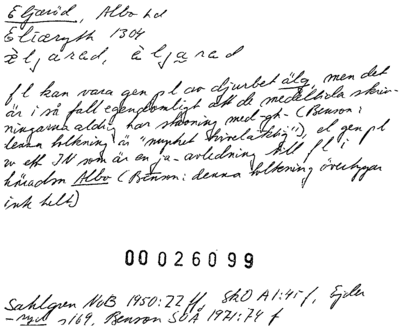 Eljaröd, Albo hd
Eliæryth 1304
èljarad, àljarad
fl kan vara gen pl av djurbet älg, men det
är i så fall egendomligt att de medeltida skriv-
ningarna aldrig har skrivning med -gh- (Benson:
denna tolkning är "mycket tvivelaktig"), el gen pl
av ett IN som är en ja-avledning till fl i
häradsn Albo (Benson: denna tolkning övertygar
inte helt)
00026099
Sahlgren NoB 1950:22 ff, SkO A1:45 f, Ejder
-ryd s 169, Benson SOÅ 1971:74 f